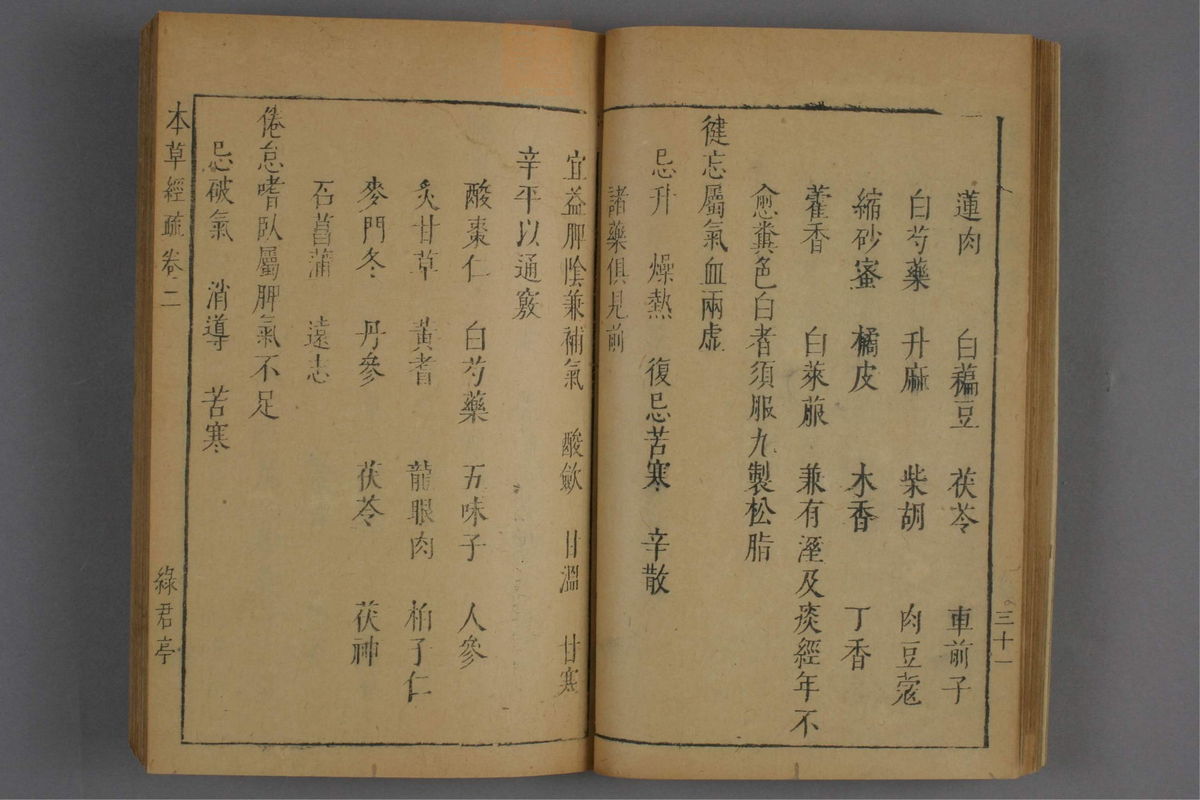 蓮肉 白藊豆 茯苓 車前子
白芍藥 升麻 柴胡 肉豆蔻
縮砂蜜 橘皮 木香 丁香
藿香 白萊菔 兼有溼及痰經年不
愈糞色白者須服九製松脂
健忘屬氣血兩虚
忌升 燥熱 復忌苦寒 辛散
諸藥俱見前
三十一
宜益脾陰兼補氣 酸歛 甘溫 甘寒
辛平以通竅
酸棗仁 白芍藥 五味子 人參
炙甘草 黃耆 龍眼肉 柏子仁
麥門冬 丹參 茯苓 茯神
石菖蒲 遠志
倦怠嗜臥屬脾氣不足
忌破氣 消導 苦寒
本草經疏卷二 綠君亭